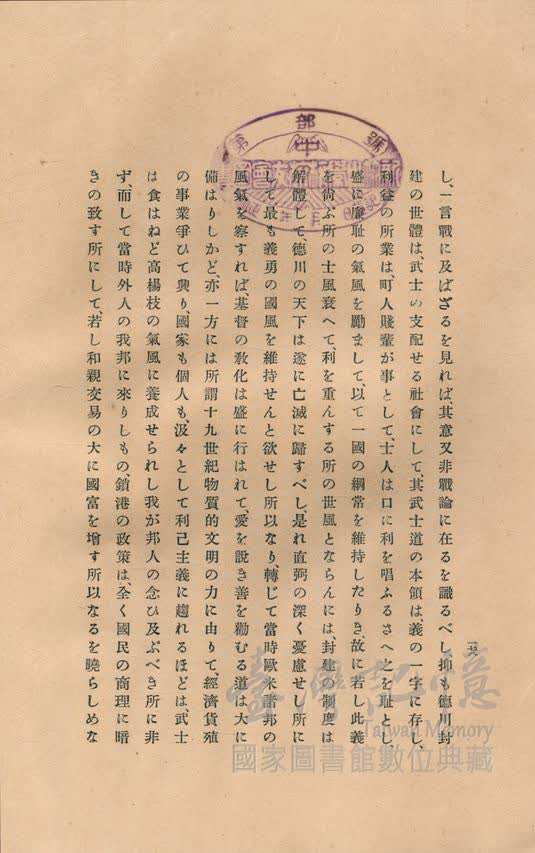 し、一言戰に及ばざるを見れば、其意又非戰論に在るを識るべし、抑も德川封
建の世體は、武士の支配せる社會にして、其武士道の本領は、義の一字に存し、
利益の所業は、町人賤輩が事として、士人は口に利を唱ふるさへ之を耻とし、
盛に廉耻の氣風を勵まして、以て一國の綱常を維持したりき、故に若し此義
を尙ぶ所の士風衰へて、利を重んする所の世風とならんには、封建の制度は
解體して、德川の天下は遂に亡滅に歸すべし、是れ直弼の深く憂慮せし所に
して最も義勇の國風を維持せんと欲せし所以なり、轉じて當時歐米諸邦の
風氣を察すれば、基督の敎化は盛に行はれて、愛を說き善を勸むる道は大に
備はりしかど、亦一方には所謂十九世紀物質的文明の力に由りて、經濟貨殖
の事業爭ひて興り、國家も個人も、汲々として利己主義に趨れるほどは、武士
は食はねど高楊枝の氣風に養成せられし我が邦人の念ひ及ぶべき所に非
ず、而して當時外人の我邦に來りしもの、鎖港の政策は、全く國民の商理に暗
きの致す所にして、若し和親交易の大に國富を增す所以なるを曉らしめな
第 部 號
臺灣記憶
Taiwan Memory
國家圖書館數位典藏